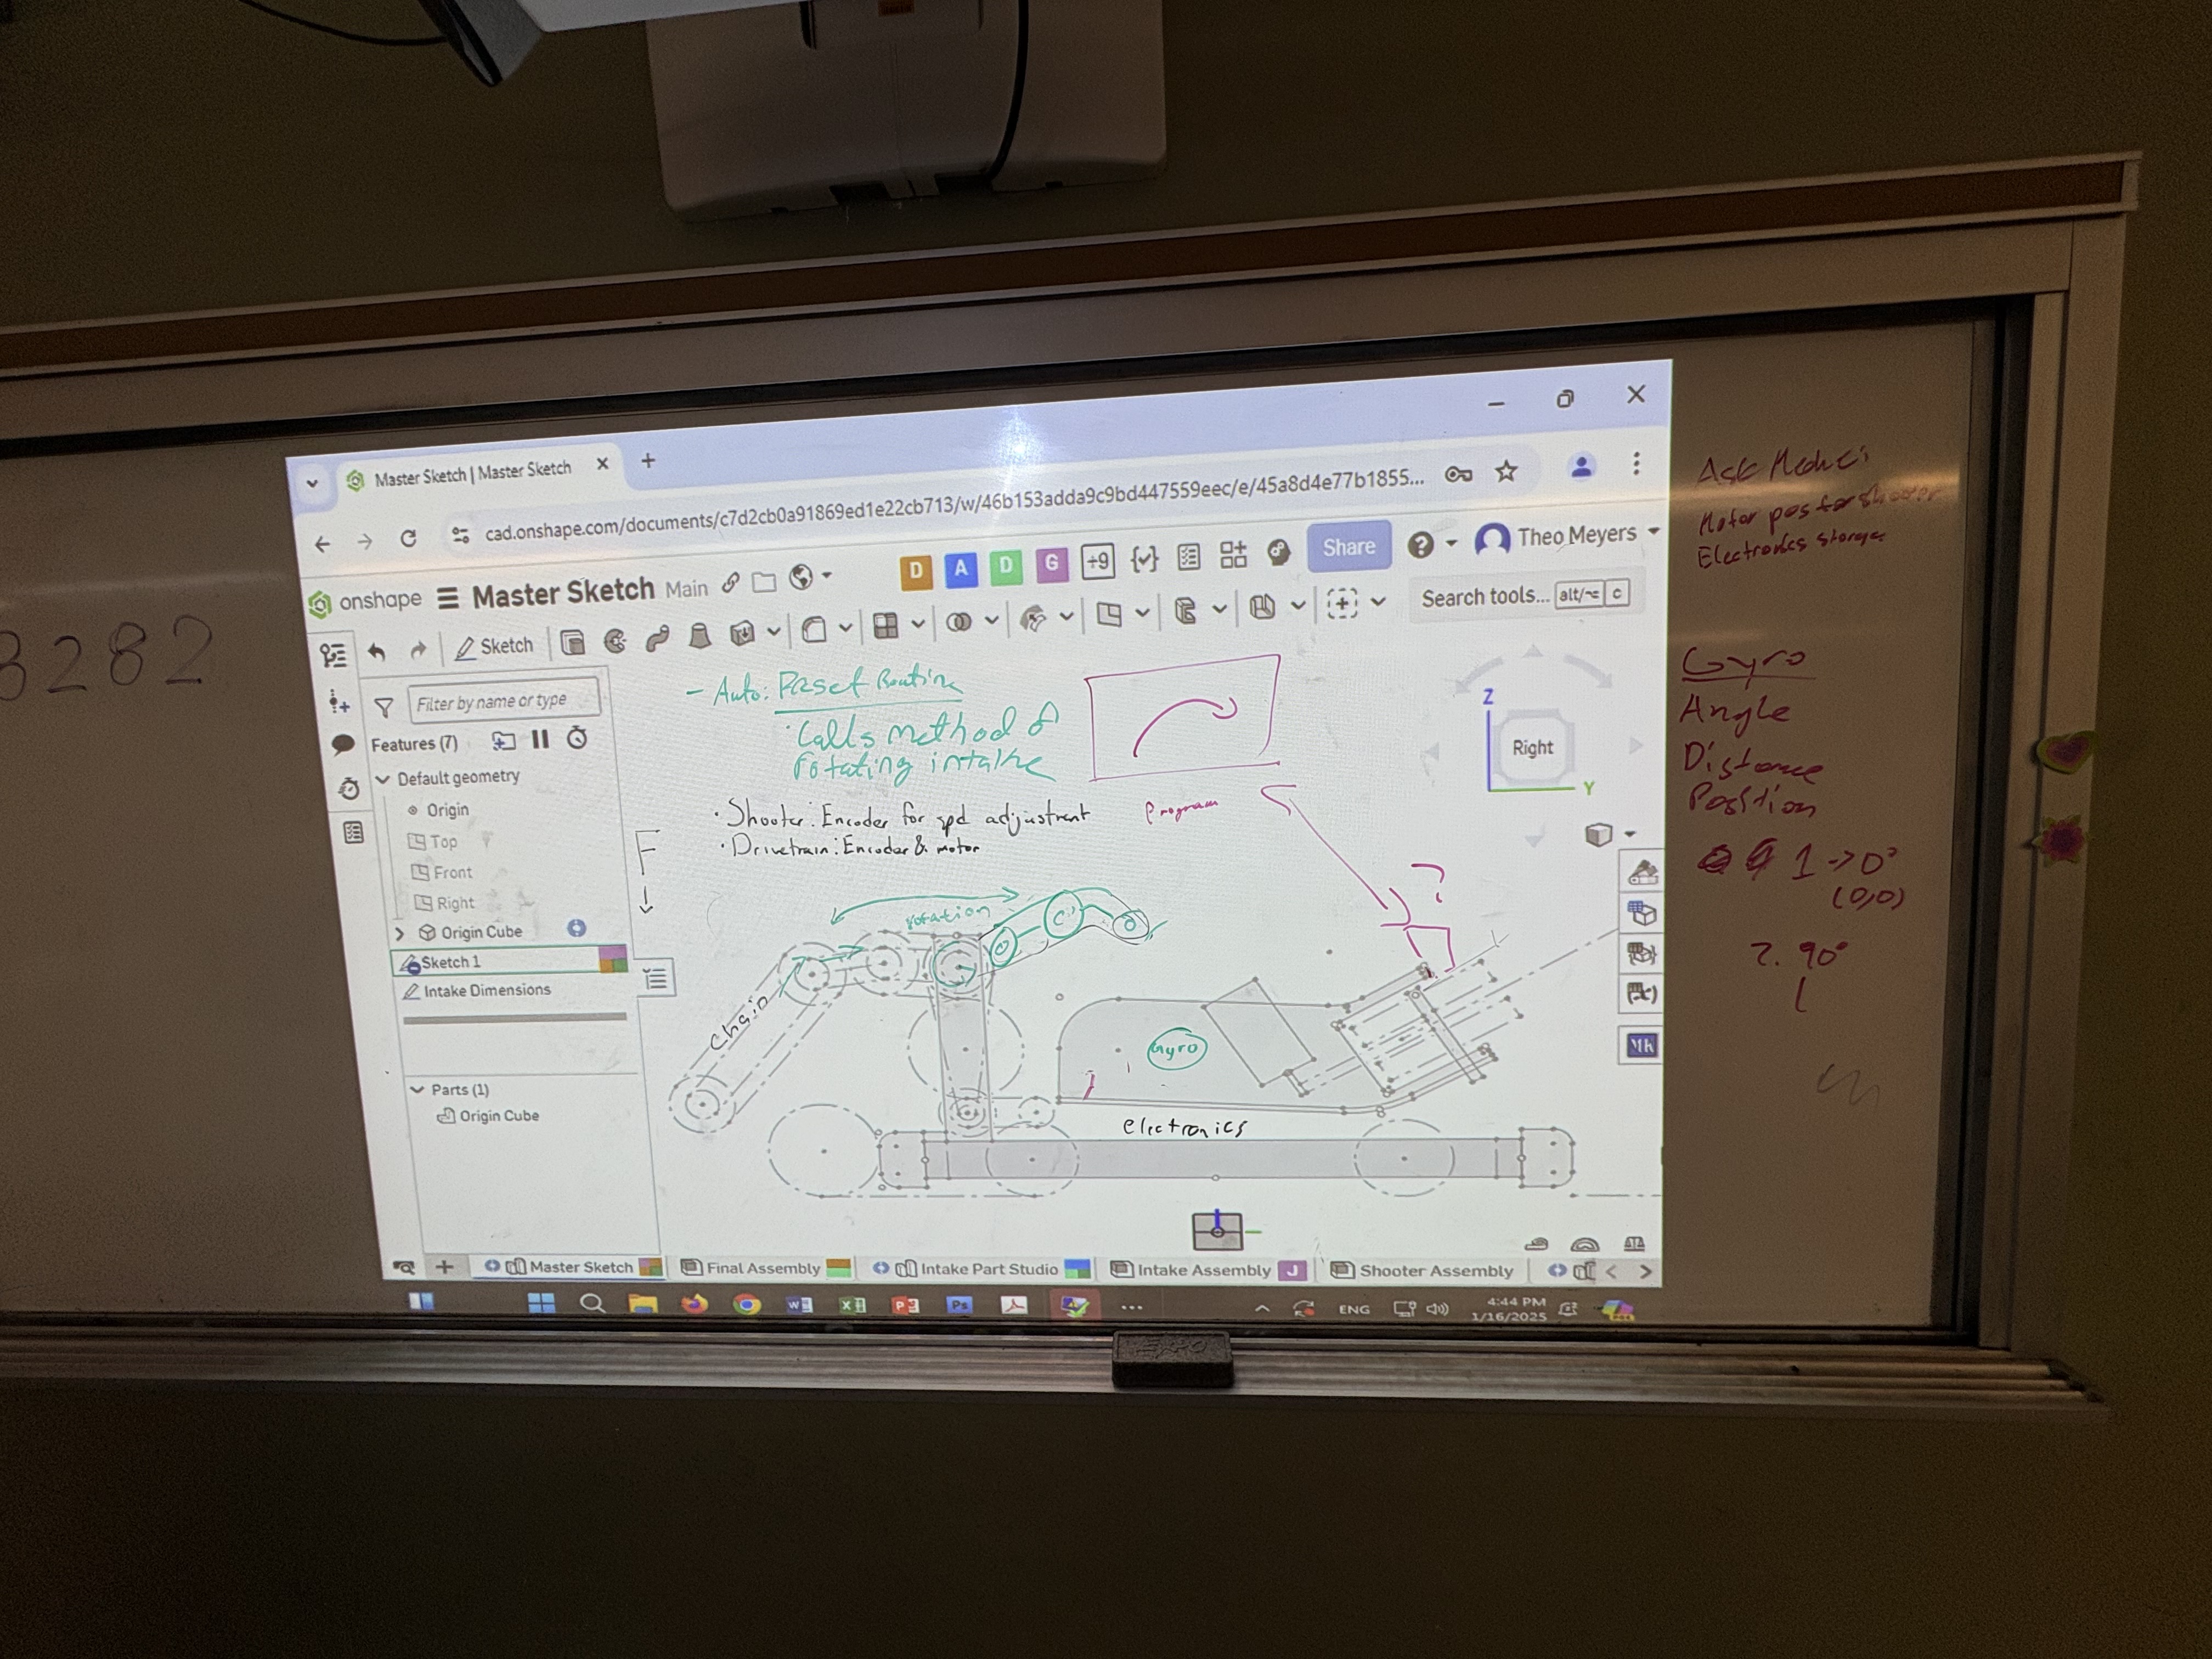 Master Sketch | Master Sketch
cad.onshape.com/documents/c7d2cb0a91869ed1e22cb713/w/46b153adda9c9bd447559eec/e/45a8d4e77b1855...
onshape Master Sketch Main
D A D G +9 Share Theo Meyers
Sketch
Search tools... alt/⌥ c
Filter by name or type
Features (7)
Default geometry
Origin
Top
Front
Right
Origin Cube
Sketch 1
Intake Dimensions
Parts (1)
Origin Cube
- Auto:
Calls method of
rotating intake
· Shooter: Encoder for spd adjustment
· Drivetrain: Encoder & motor
Program
F
rotation
Chain
Gyro
electronics
?
Z
Right
Y
Mk
Master Sketch
Final Assembly
Intake Part Studio
Intake Assembly J
Shooter Assembly
W X P Ps
ENG
4:44 PM
1/16/2025
3282
Ask
Motor pos for shooter
Electronics storage
Gyro
Angle
Distance
Position
1 -> 0°
(0,0)
2. 90°
EXPO